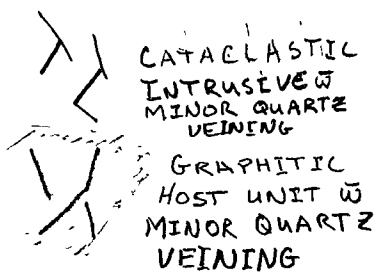 CATACLASTIC
INTRUSIVE w̄
MINOR QUARTZ
VEINING
GRAPHITIC
HOST UNIT w̄
MINOR QUARTZ
VEINING